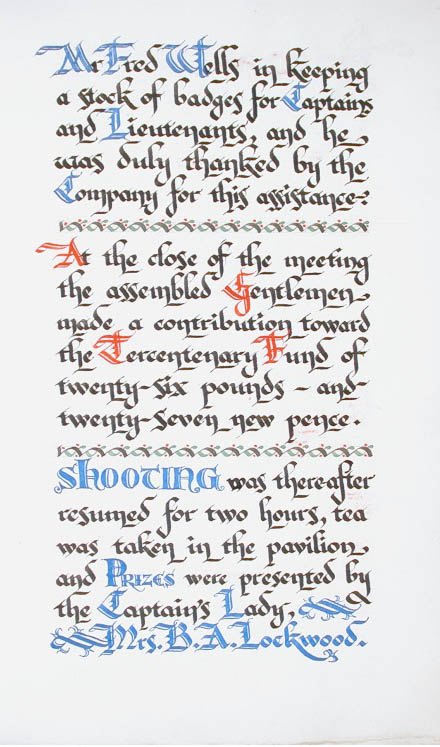 Mr Fred Wells in keeping
a stock of badges for Captains
and Lieutenants, and he
was duly thanked by the
Company for this assistance.
At the close of the meeting
the assembled Gentlemen
made a contribution toward
the Tercentenary Fund of
twenty-six pounds - and
twenty-seven new pence.
SHOOTING was thereafter
resumed for two hours, tea
was taken in the pavilion
and PRIZES were presented by
the Captain's Lady,
Mrs. B. A. Lockwood.